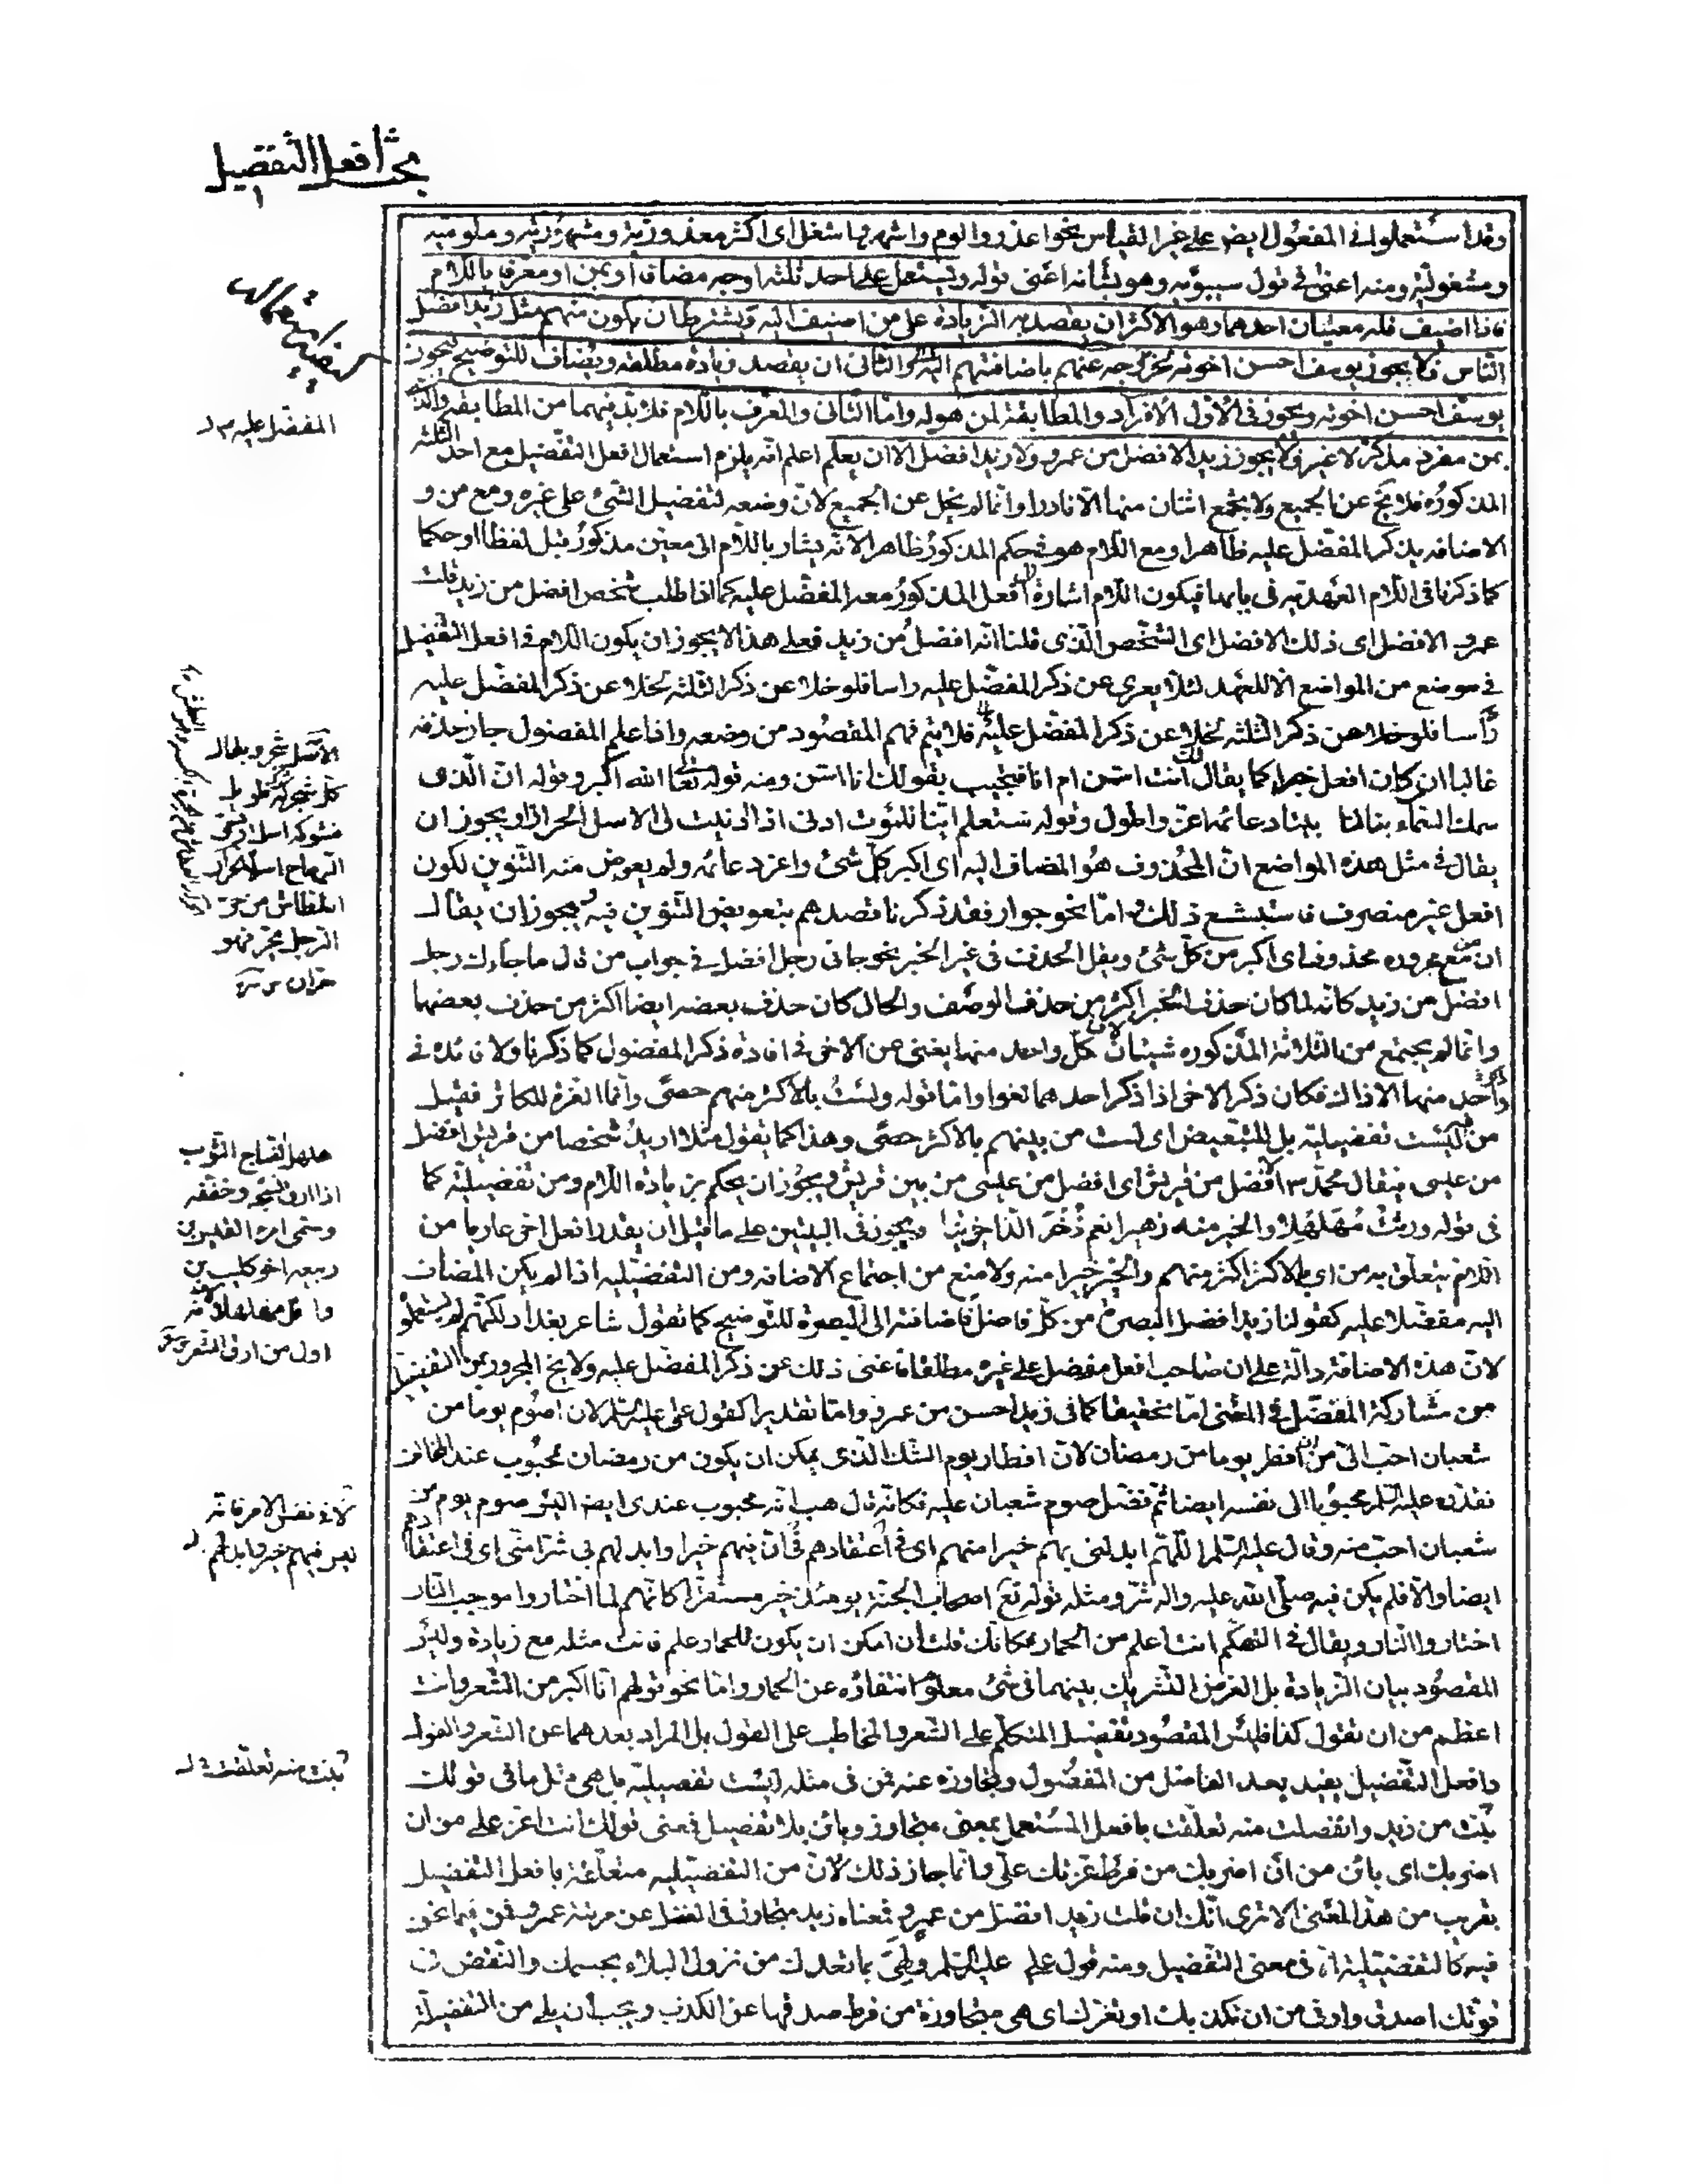 بحث افعل التفضيل
وقد استعملوا فى المفعول ايض على غير القياس نحو اعذر والوم واشهر واشغل اى اكثر معذورية ومشهورية وملومية
ومشغولية ومنه اعنى فى قول سيبويه وهو بشانه اعنى قوله ويستعمل على احد ثلثه اوجه مضافا او بمن او معرفا باللام
فاذا اضيف فله معنيان احدهما وهو الاكثر ان يقصد به الزيادة على من اضيف اليه ويشترط ان يكون منهم مثل زيد افضل
الناس فلا يجوز يوسف احسن اخوته لخروجه عنهم باضافتهم اليه والثانى ان يقصد زيادة مطلقه ويضاف للتوضيح فيجوز
يوسف احسن اخوته ويجوز فى الاول الافراد والمطابقة لمن هو له واما الثانى والمعرف باللام فلا بد فيهما من المطابقه والذى
بمن مفرد مذكر لا غير ولا يجوز زيد الافضل من عمرو ولا زيد افضل الا ان يعلم اعلم انه يلزم استعمال افعل التفضيل مع احد الثلثه
المذكوره فلا يخ عن الجميع ولا يجتمع اثنان منها الا نادرا وانما لم يخل عن الجميع لان وضعه لتفضيل الشئ على غيره ومع من و
الاضافه يذكر المفضل عليه ظاهرا ومع اللام هو فى حكم المذكور ظاهرا لانه يشار باللام الى معين مذكور قبل لفظا او حكما
كما ذكرنا فى اللام العهديه فى بابها فيكون اللام اشارة الى افعل المذكور معه المفضل عليه كما اذا طلب شخص افضل من زيد قلت
عمرو الافضل اى ذلك الافضل اى الشخص الذى قلنا انه افضل من زيد فعلى هذا لا يجوز ان يكون اللام فى افعل التفضيل
فى موضع من المواضع الا للعهد لئلا يعرى عن ذكر المفضل عليه راسا فلو خلا عن ذكر الثلثه لخلا عن ذكر المفضل عليه
رأسا فلو خلا عن ذكر الثلثه لخلا عن ذكر المفضل عليه فلا يتم فهم المقصود من وضعه واذا علم المفضول جاز حذفه
غالبا ان كان افعل خبرا كما يقال لك انت اسن ام انا فتجيب بقولك انا اسن ومنه قوله تعالى الله اكبر وقوله ان الذى
سمك السماء بنا لنا بيتا دعائمه اعز واطول وقوله ستعلم اينا للموت ادنى اذا دنيت لى الاسل الحرارا ويجوز ان
يقال فى مثل هذه المواضع ان المحذوف هو المضاف اليه اى اكبر كل شئ واعز دعائمه ولم يعوض منه التنوين لكون
افعل غير منصرف فاستبشع ذلك واما نحو جوار فقد ذكرنا قصدهم بتعويض التنوين فيه ويجوز ان يقال
ان من مع مجروره محذوف اى اكبر من كل شئ ويقل الحذف فى غير الخبر نحو جانى رجل افضل فى جواب من قال ما جاءك رجل
افضل من زيد كانه لما كان حذف الخبر اكثر من حذف الوصف والحال كان حذف بعضه ايضا اكثر من حذف بعضهما
وانما لم يجتمع من الثلاثة المذكوره شيئان لان كل واحد منها يغنى عن الاخر فى افادة ذكر المفضول كما ذكرنا ولا فائده فى
واحد منها الا ذاك فكان ذكر الاخر اذا ذكر احدهما لغوا واما قوله ولست بالاكثر منهم حصى وانما العزة للكاثر فقيل
من ليست تفضيلية بل للتبعيض اى لست من بينهم بالاكثر حصى وهذا كما تقول مثلا اريد شخصا من قريش افضل
من عيسى فيقال محمد ص افضل من قريش اى افضل من عيسى من بين قريش ويجوز ان يحكم بزيادة اللام ومن تفضيلية كما
فى قوله ورثت مهلهلا والخير منه زهيرا نعم ذخر الذاخرينا ويجوز فى البيتين على ما قيل ان يقدر افعل اخر عاريا من
اللام يتعلق به من اى بالاكثر اكثر منهم والخير خيرا منه ولا منع من اجتماع الاضافه ومن التفضيليه اذا لم يكن المضاف
اليه مفضلا عليه كقولنا زيد افضل البصرة من كل فاضل فاضافته الى البصرة للتوضيح كما تقول شاعر بغداد لكنهم لم يستعملو
لان هذه الاضافة دالة على ان صاحب افعل مفضل على غيره مطلقا فاغنى ذلك عن ذكر المفضل عليه ولا يخ المجرور بمن التفضيلية
من مشاركة المفضل فى المعنى اما تحقيقا كما فى زيد احسن من عمرو واما تقديرا كقول على عليه السلم لان اصوم يوما من
شعبان احب الى من ان افطر يوما من رمضان لان افطار يوم الشك الذى يمكن ان يكون من رمضان محبوب عند المخالف
فقدره عليه السلم محبوبا الى نفسه ايضا ثم فضل صوم شعبان عليه فكانه قال هب انه محبوب عندى ايضا اليس صوم يوم من
شعبان احب منه وقال عليه السلم اللهم ابدلنى بهم خيرا منهم اى فى اعتقادهم لان فيهم خيرا وابدلهم بى شرا منى اى فى اعتقادهم
ايضا والا فلم يكن فيه صلى الله عليه واله شر ومثله قوله تع اصحاب الجنة يومئذ خير مستقرا كانهم لما اختاروا موجب النار
اختاروا النار ويقال فى التهكم انت اعلم من الحمار فكانك قلت ان امكن ان يكون للحمار علم فانت مثله مع زيادة وليس
المقصود بيان الزيادة بل الغرض التشريك بينهما فى شئ معلوم انتفاؤه عن الحمار واما نحو قولهم انا اكبر من الشعر وانت
اعظم من ان تقول كذا فليس المقصود تفضيل المتكلم على الشعر والمخاطب على القول بل المراد بعدهما عن الشعر والقول
وافعل التفضيل يفيد بعد الفاضل من المفضول وتجاوزه عنه فمن فى مثله ليست تفضيلية بل هى مثل ما فى قولك
بنت من زيد وانفصلت منه تعلقت بافعل المستعمل بمعنى متجاوز وبائن بلا تفضيل فمعنى قولك انت اعز على من ان
اضربك اى بائن من ان اضربك من فرط عزتك على وانما جاز ذلك لان من التفضيليه متعلقة بافعل التفضيل
بقريب من هذا المعنى الا ترى انك ان قلت زيد افضل من عمرو فمعناه زيد متجاوز فى الفضل عن مرتبة عمرو فمن فيما نحن
فيه كالتفضيلية الا فى معنى التفضيل ومنه قول على عليه السلم ولهى بما تعدك من نزول البلاء بجسمك والنقض فى
قوتك اصدق واوفى من ان تكذبك او تغرك اى هى متجاوزة من فرط صدقها عن الكذب ويجب ان يلى من التفضيلة
المفضل عليه
الاسل شجر ويقال
كل شجر له شوك طويل
فشوكه اسل وتسمى
الرماح اسلا الحرار
العطاش من حر
الرجل يحر فهو
حران
هلهل النساج الثوب
اذا ارق نسجه وخففه
وسمى امرء القيس بن
ربيعه اخو كليب بن
وائل مهلهلا لانه
اول من ارق الشعر
لا فى نفس الامر فانه
ليس فيهم خير وابدلهم
بنت منه تعلقت